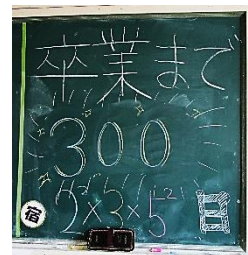 卒業まで
300
2²×3×5²日
宿